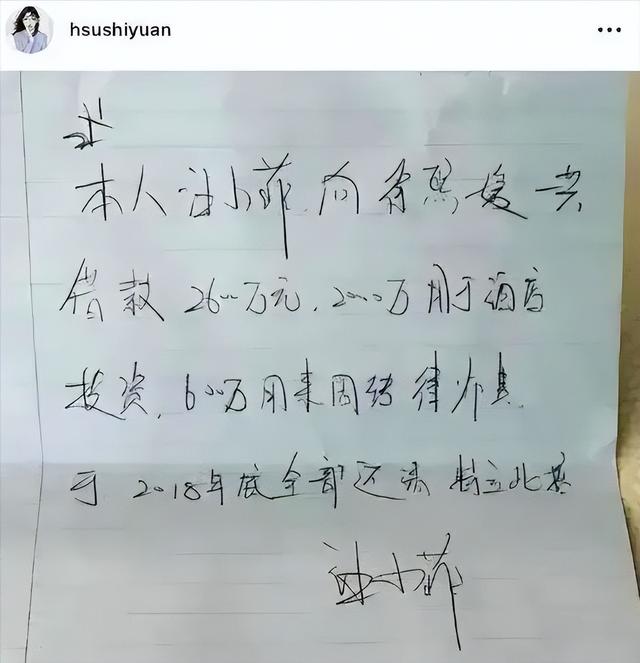 hsushiyuan
本人汪小菲向徐熙媛共
借款2600万元,2000万用于酒店
投资,600万用来周转
于2018年底全部还清 特立此据
汪小菲